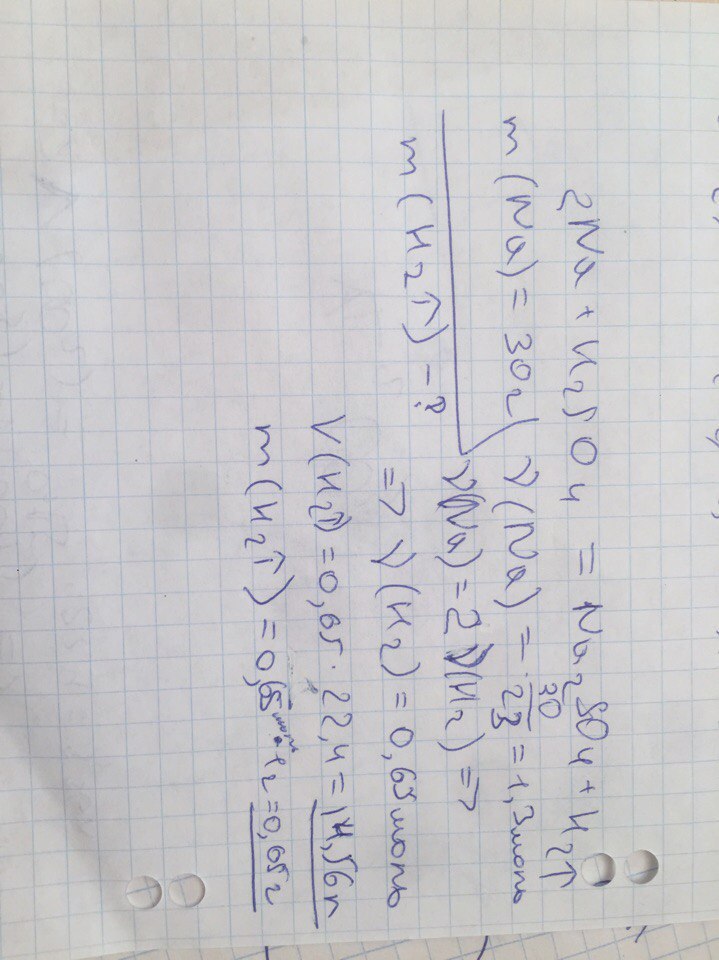 2Na + H2SO4 = Na2SO4 + H2↑
m(Na) = 30г
ν(Na) = 30/23 = 1,3моль
ν(Na) = 2ν(H2) =>
m(H2↑) - ?
=> ν(H2) = 0,65моль
V(H2↑) = 0,65 · 22,4 = 14,56л
m(H2↑) = 0,65моль · 1г = 0,65г